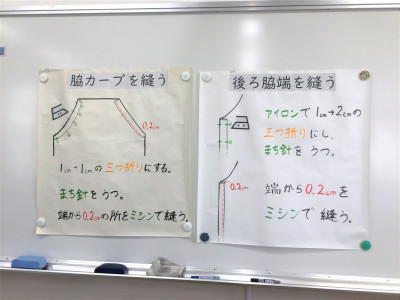 脇カーブを縫う
0.2cm
1cm→1cmの三つ折りにする。
まち針をうつ。
端から0.2cmの所をミシンで縫う。
後ろ脇端を縫う
アイロンで1cm→2cmの
三つ折りにし、
まち針をうつ。
0.2cm
端から0.2cmを
ミシンで縫う。